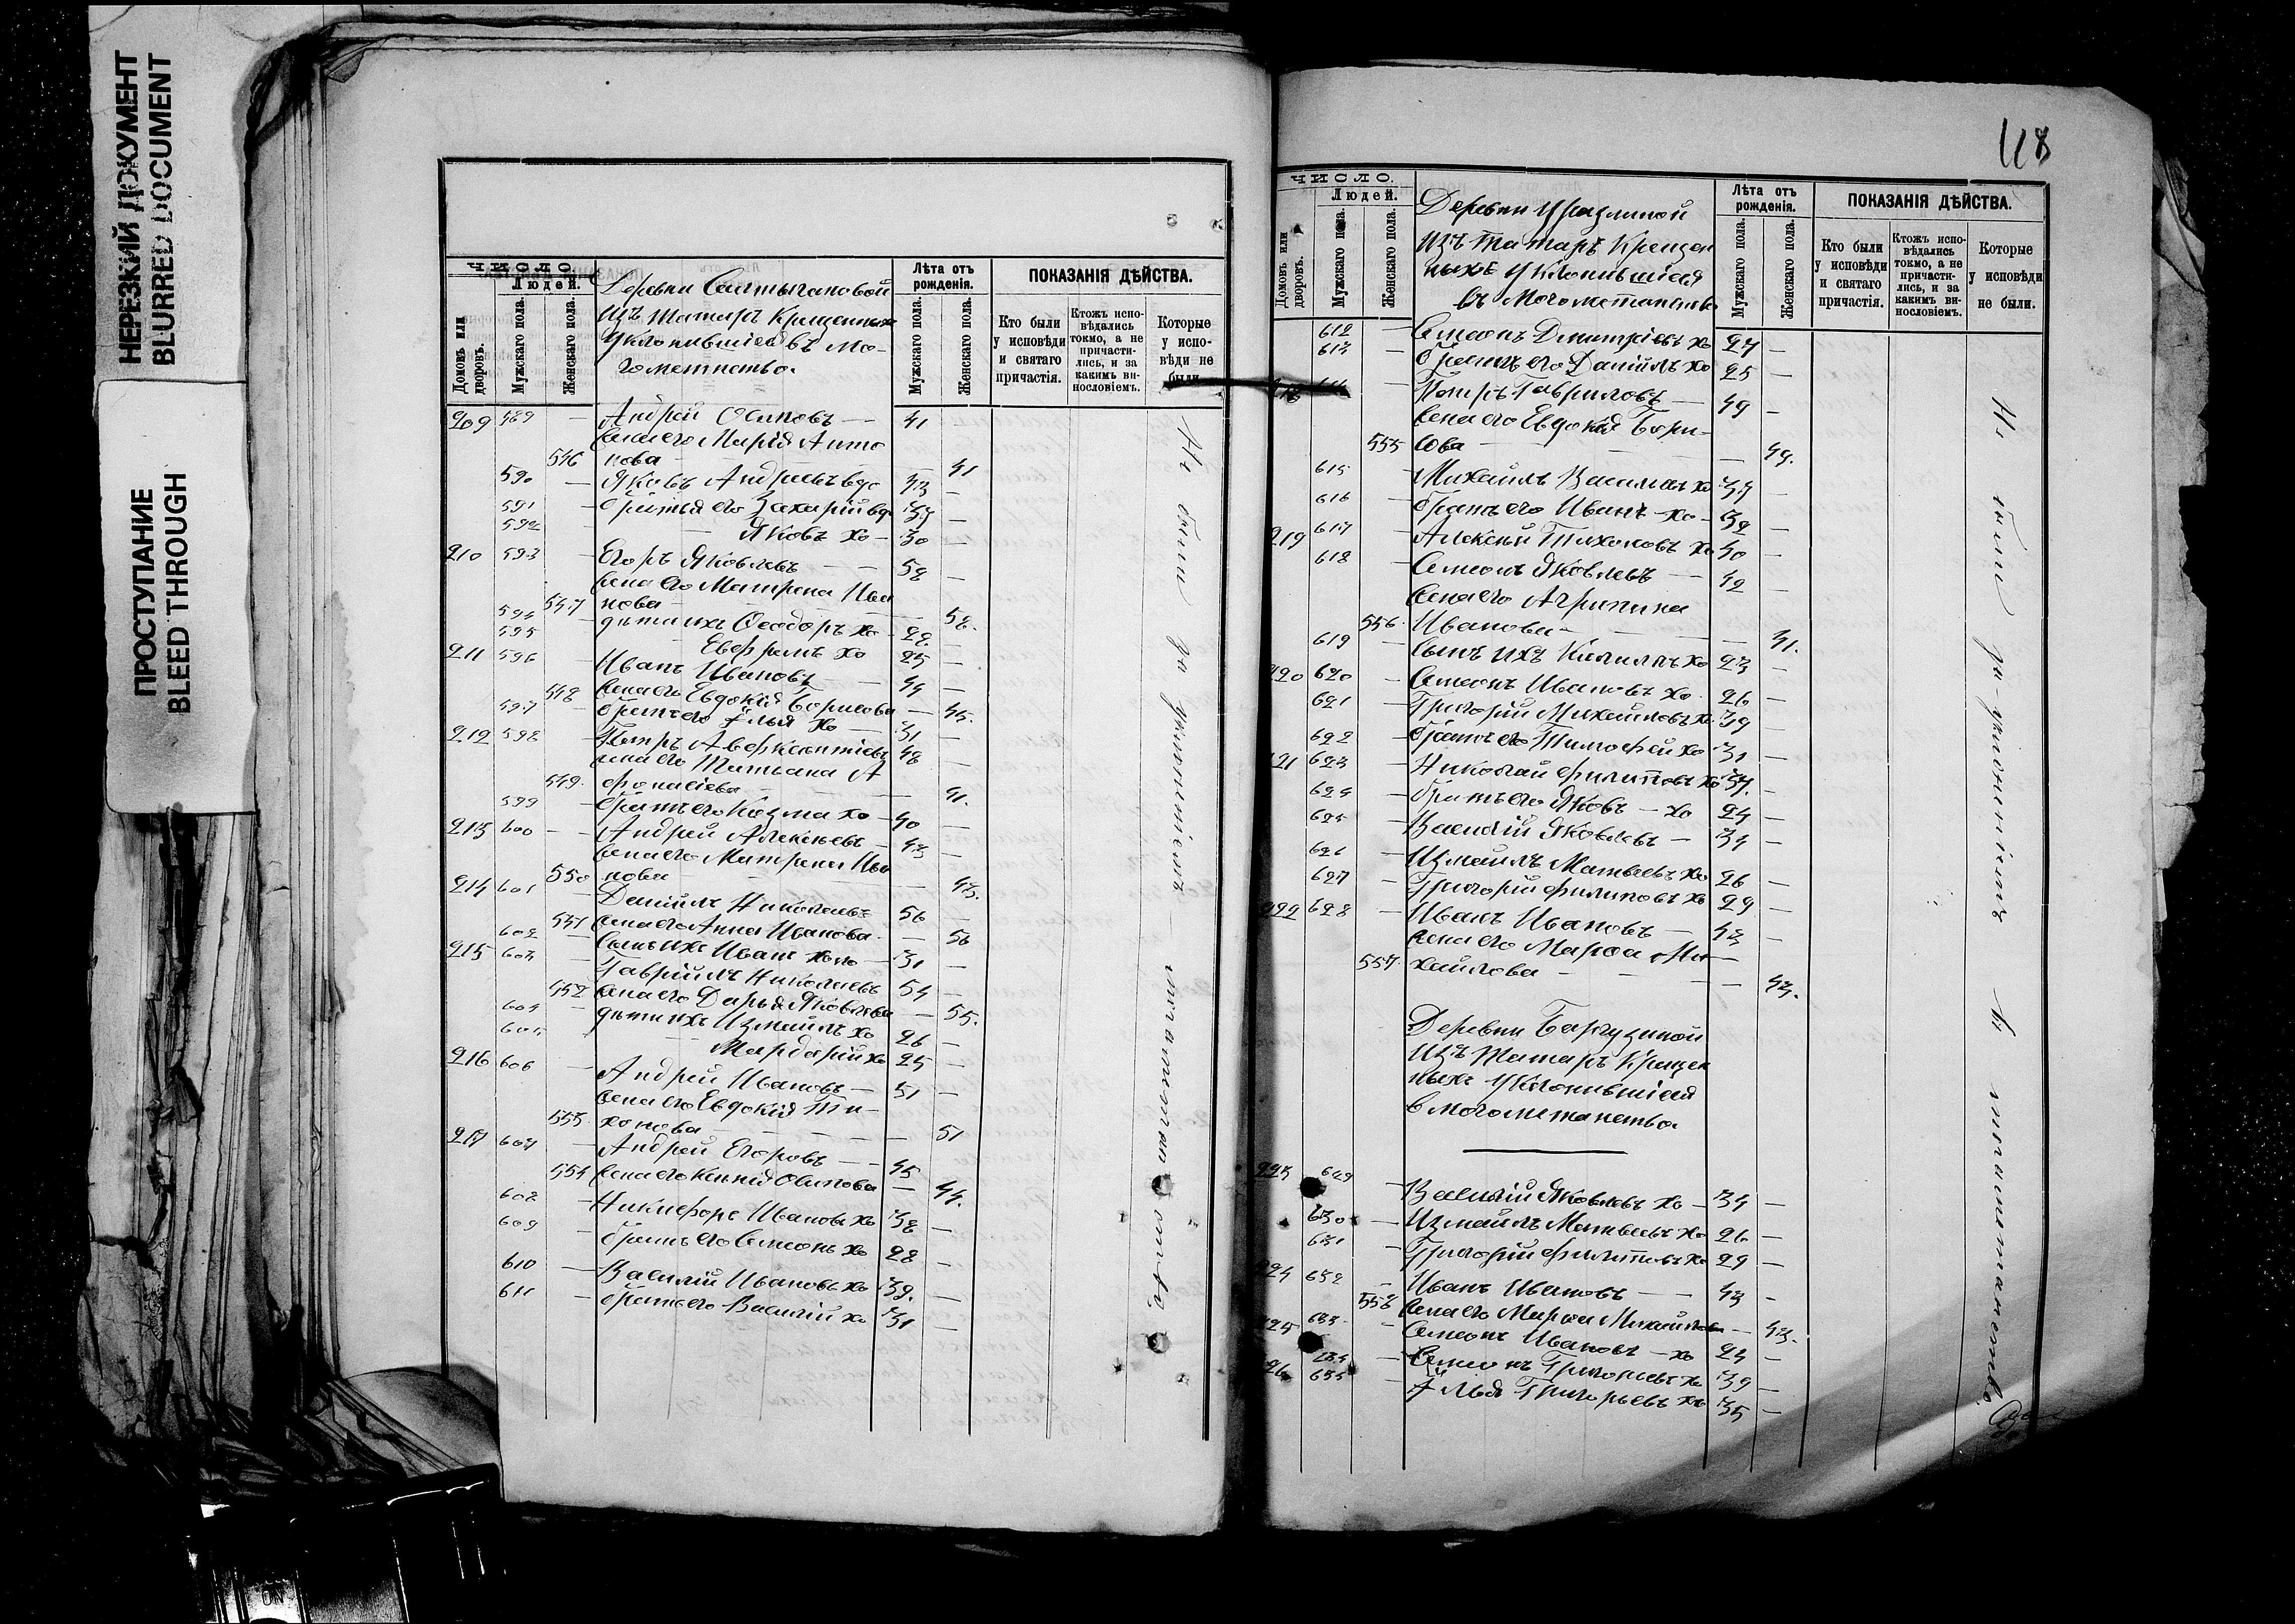 НЕРЕЗКИЙ ДОКУМЕНТ
BLURRED DOCUMENT
ПРОСТУПАНИЕ
BLEED THROUGH
ЧИСЛО.
Людей.
Домовъ или дворовъ.
Мужскаго пола.
Женскаго пола.
Деревни
Изъ Татаръ Крещенныхъ
Уклонившіеся въ Мо-
гометнство.
Лѣта отъ рожденія.
Мужскаго пола.
Женскаго пола.
ПОКАЗАНІЯ ДѢЙСТВА.
Кто были у исповѣди и святаго причастія.
Ктожъ исповѣдались токмо, а не причастились, и за какимъ винословіемъ.
Которые у исповѣди не были.
209 589 — Андрей Осиповъ — 41
Жена его Марія Анто
546 нова — 41
590 — Яковъ Андреевъ вдо 43 —
591 — братья его Захарій вдо 34 —
592 — Яковъ хо — 30 —
210 593 — Егоръ Яковлевъ — 58 —
Жена его Матрена Ива
547 нова — 58.
594 — дѣти ихъ Ѳеодоръ хо 28. —
595 Ефремъ хо 25 —
211 596 — Иванъ Ивановъ — 44 —
548 Жена его Евдокія Борисова — 45.
597 — братъ его Илья хо — 31 —
212 598 — Петръ Аверкентіевъ 48 —
Жена его Татьяна А
549. фонасіева — 41.
599 — братъ его Козма хо — 40 —
213 600 — Андрей Алексѣевъ — 43 —
Жена его Матрена Ива
550 нова — 43.
214 601 — Даніилъ Николаевъ 56 —
551 Жена его Анна Иванова — 56
602 — Сынъ ихъ Иванъ хо — 31 —
215 603 — Гавріилъ Николаевъ 54 —
552 Жена его Дарья Яковлева — 55.
604 — дѣти ихъ Измаилъ хо 26 —
605 — Мардарій хо 25 —
216 606 — Андрей Ивановъ — 51 —
Жена его Евдокія Ти-
553 хонова — 51
217 607 — Андрей Егоровъ — 45
554 Жена его Ксенія Осипова — 44.
608 — Никифоръ Ивановъ хо 38 —
609 — братъ его Семенъ хо 28 —
610 — Василій Ивановъ хо 39. —
611 — братъ его Василій хо 31 —
Не были за уклоненіемъ въ могаметанство
118
ЧИСЛО.
Людей.
Домовъ или дворовъ.
Мужскаго пола.
Женскаго пола.
Деревни Уразлиной
Изъ Татаръ Крещен
ныхъ Уклонившіеся
въ Могометанство
Лѣта отъ рожденія.
Мужскаго пола.
Женскаго пола.
ПОКАЗАНІЯ ДѢЙСТВА.
Кто были у исповѣди и святаго причастія.
Ктожъ исповѣдались токмо, а не причастились, и за какимъ винословіемъ.
Которые у исповѣди не были.
612 — Семенъ Дмитріевъ хо 27 —
613 — братъ его Даніилъ хо 25 —
218 614 Петръ Гавриловъ — 49 —
Жена его Евдокія Бори-
555 сова — 49.
615 — Михаилъ Васильевъ хо 34 —
616 — братъ его Иванъ хо — 32 —
219 617 — Алексѣй Тихоновъ хо 40 —
618 — Семенъ Яковлевъ — 42 —
Жена его Агрипина
556 Иванова — 41.
619 — Сынъ ихъ Кириллъ хо 23 —
220 620 — Семенъ Ивановъ хо 26 —
621 — Григорій Михайловъ хо 39 —
622 — братъ его Тимофей хо 31 —
221 623 — Николай Филиповъ хо 34. —
624 — братъ его Яковъ — хо 24 —
625 — Василій Яковлевъ — 34 —
626 — Измаилъ Матвѣевъ хо 26 —
627 — Григорій Филиповъ хо 29 —
222 628 — Иванъ Ивановъ — 43 —
Жена его Марѳа Ми
557 хайлова — 43.
Деревни Баргузиной
Изъ Татаръ Крещен
ныхъ Уклонившіеся
въ могометанство.
223 629 — Василій Яковлевъ хо — 34 —
630 — Измаилъ Матвѣевъ хо 26 —
631 — Григорій Филиповъ хо 29 —
224 632 — Иванъ Ивановъ — 43 —
558 Жена его Марѳа Михайлова — 43.
225 633 — Семенъ Ивановъ — хо 24 —
634 — Семенъ Григорьевъ хо 39 —
226 635 — Илья Григорьевъ хо 35 —
Не были за уклоненіемъ въ могаметанство